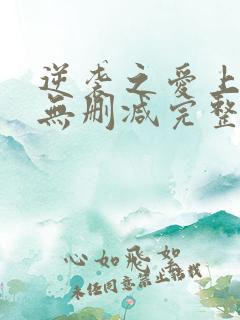 逆袭之愛上
無刪減完整
心如飛絮
未经同意禁止转载